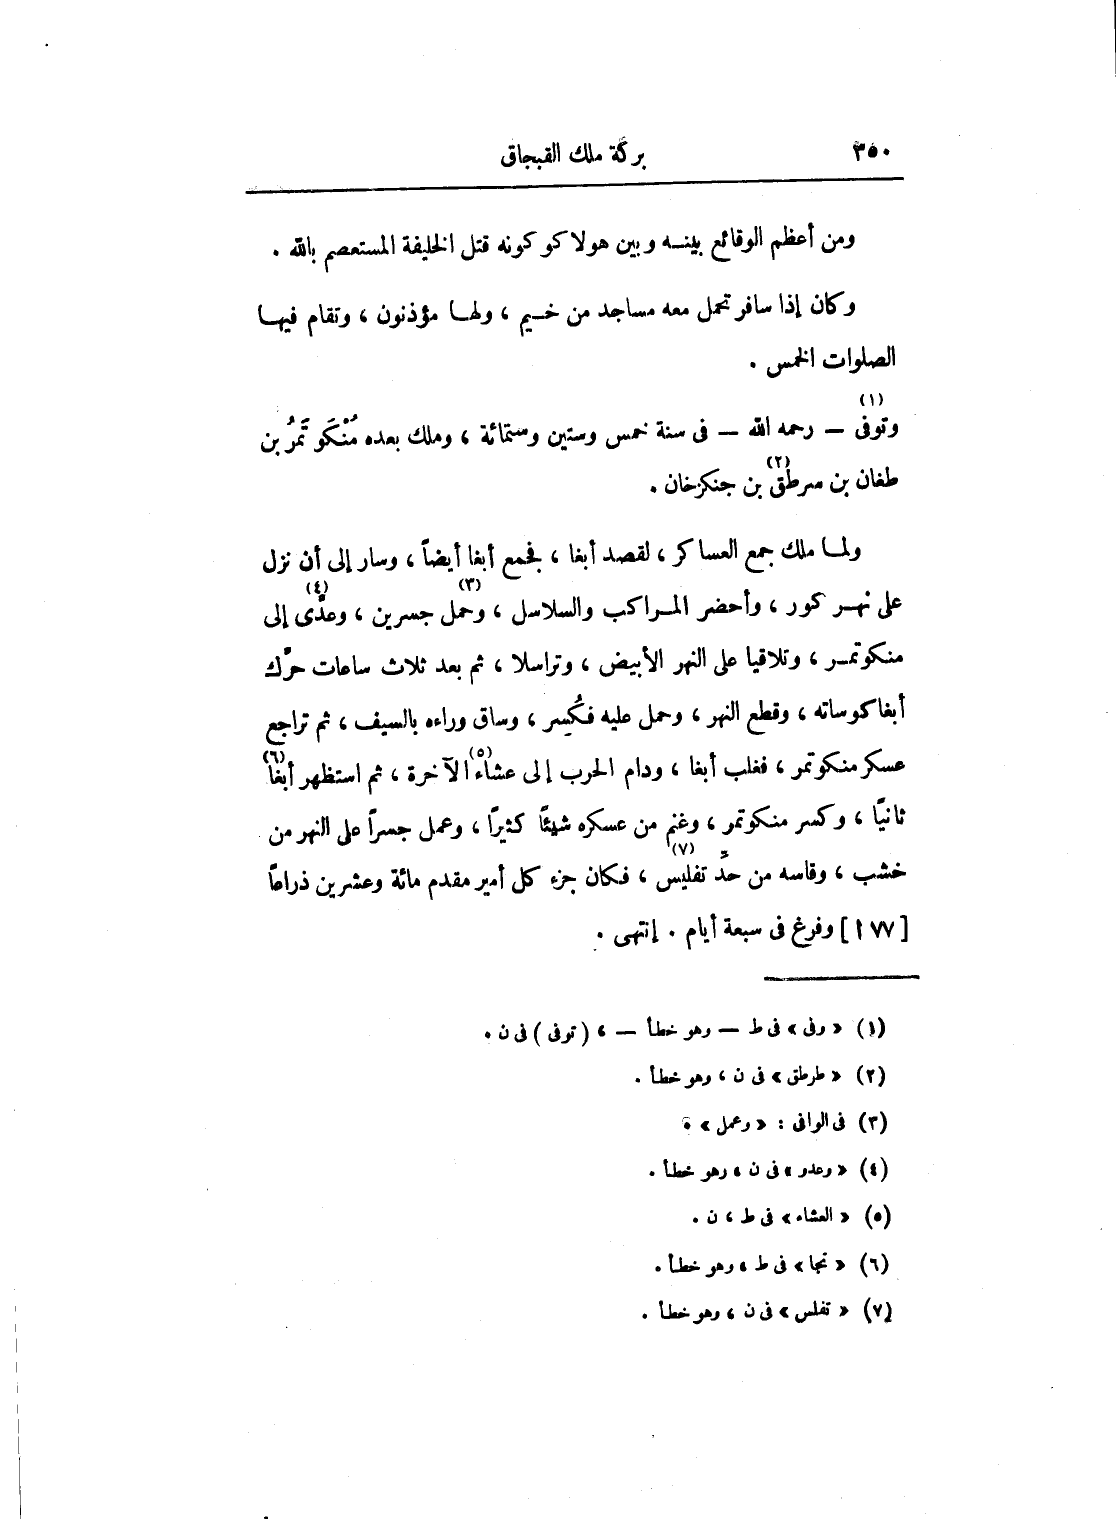 ٣٥٠ بركة ملك القبجاق
ومن أعظم الوقائع بينه وبين هولاكو كونه قتل الخليفة المستعصم بالله .
وكان إذا سافر تحمل معه مساجد من خيم ، ولها مؤذنون ، وتقام فيها
الصلوات الخمس .
وتوفى (١) — رحمه الله — فى سنة خمس وستين وستمائة ، وملك بعده مُنْكَو تَمُر بن
طغان بن سرطق (٢) بن جنكزخان .
ولما ملك جمع العساكر ، لقصد أبغا ، فجمع أبغا أيضاً ، وسار إلى أن نزل
على نهر كور ، وأحضر المراكب والسلاسل ، وحمل (٣) جسرين ، وعدَّى (٤) إلى
منكوتمر ، وتلاقيا على النهر الأبيض ، وتراسلا ، ثم بعد ثلاث ساعات حرَّك
أبغا كوساته ، وقطع النهر ، وحمل عليه فكُسِر ، وساق وراءه بالسيف ، ثم تراجع
عسكر منكوتمر ، فغلب أبغا ، ودام الحرب إلى عشاء (٥) الآخرة ، ثم استظهر أبغا (٦)
ثانيًا ، وكسر منكوتمر ، وغنم من عسكره شيئًا كثيرًا ، وعمل جسراً على النهر من
خشب ، وقاسه من حدِّ تفليس (٧) ، فكان جزء كل أمير مقدم مائة وعشرين ذراعاً
[ ١٧٧ ] وفرغ فى سبعة أيام . إنتهى .
(١) « وفى » فى ط — وهو خطأ — ، ( توفى ) فى ن .
(٢) « طرطق » فى ن ، وهو خطأ .
(٣) فى الوافى : « وعمل » .
(٤) « وعدو » فى ن ، وهو خطأ .
(٥) « العشاء » فى ط ، ن .
(٦) « تجا » فى ط ، وهو خطأ .
(٧) « تفلس » فى ن ، وهو خطأ .